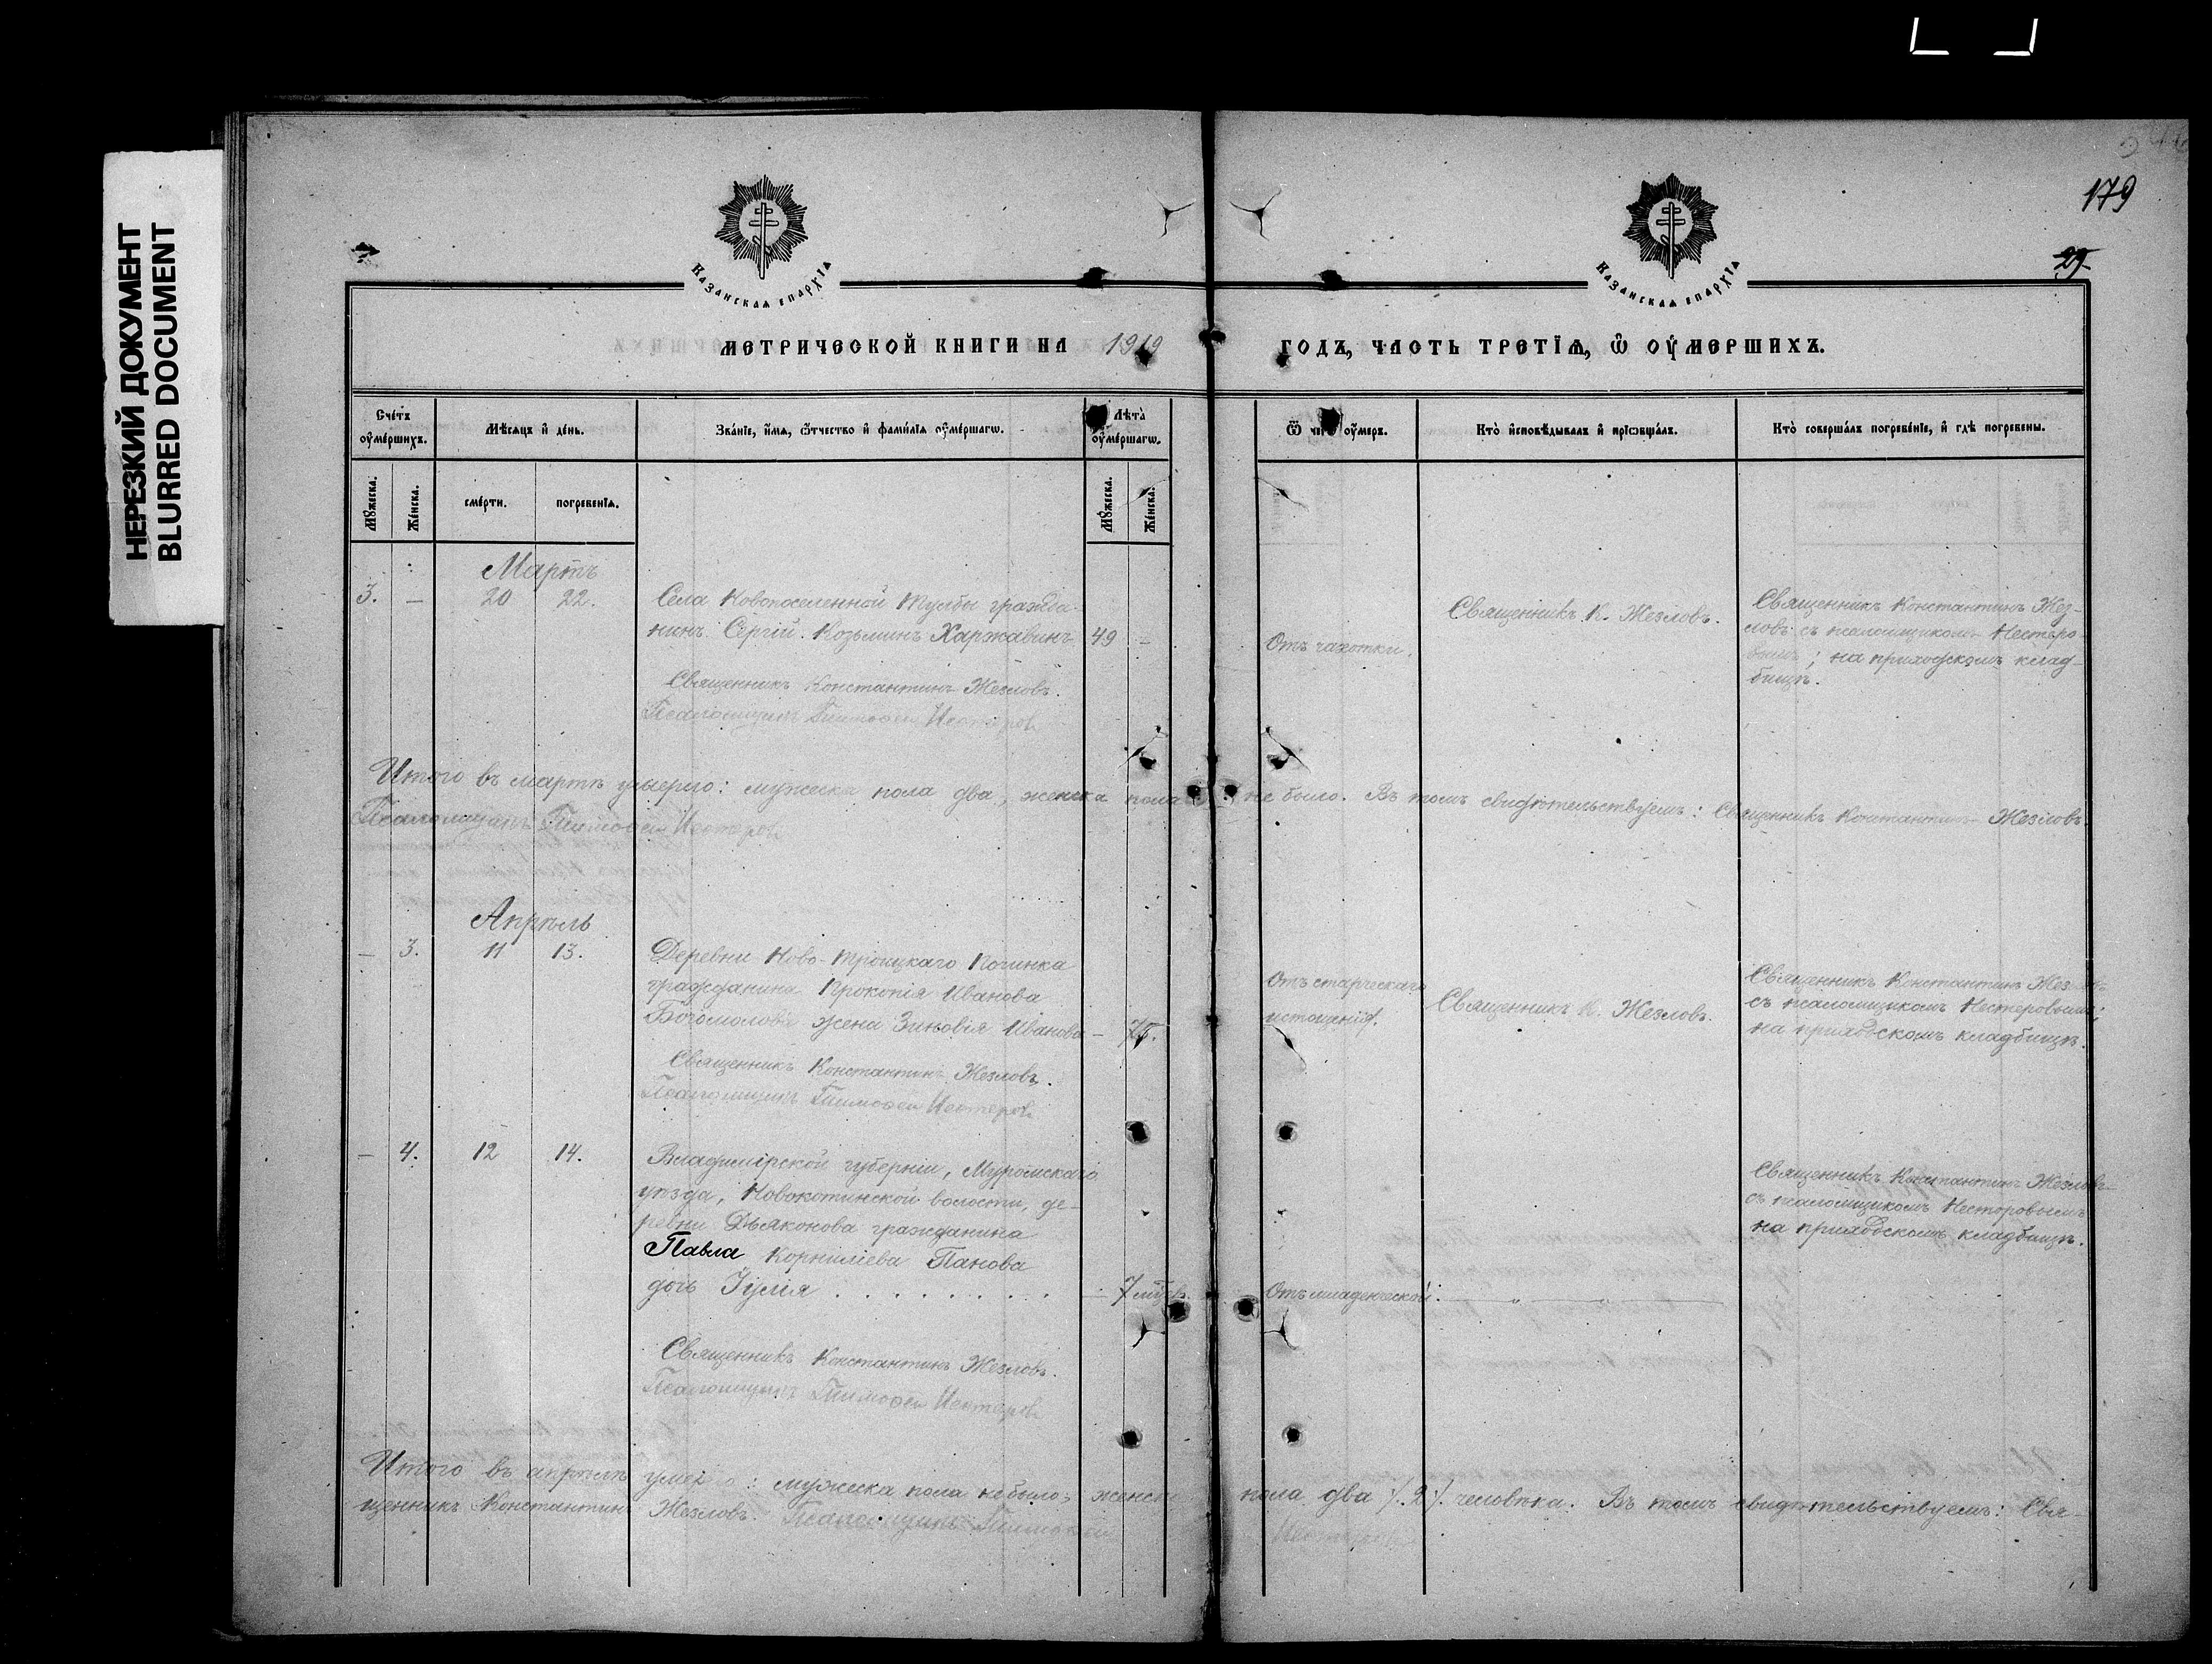 НЕРЕЗКИЙ ДОКУМЕНТ
BLURRED DOCUMENT
179
29
Казанская епархїѧ
Казанская епархїѧ
МЕТРИЧЕСКОЙ КНИГИ НА 1919 ГОДЪ, ЧАСТЬ ТРЕТІѦ, Ѿ ОУМЕРШИХЪ.
Счетъ оумершихъ.
Мѣсяцъ и день.
Званіе, имя, отчество и фамилія оумершагѡ.
Лѣта оумершагѡ.
Ѿ чего оумеръ.
Кто исповѣдывалъ и пріѡбщалъ.
Кто совершалъ погребеніе, и гдѣ погребены.
Мужеска.
Женска.
смерти.
погребенія.
Мужеска.
Женска.
Мартъ
3. — 20 22.
Села Новопоселенной Тумбы гражда-
нинъ Сергій Козьминъ Харжавинъ 49 —
Отъ чахотки.
Священникъ К. Жезловъ.
Священникъ Константинъ Жез-
ловъ съ псаломщикомъ Нестеро-
вымъ; на приходскомъ клад-
бищѣ.
Священникъ Константинъ Жезловъ.
Псаломщикъ Тимофей Нестеровъ
Итого въ мартѣ умерло: мужеска пола два, женска пола не было. Въ томъ свидѣтельствуемъ: Священникъ Константинъ Жезловъ.
Псаломщикъ Тимофей Нестеровъ
Апрѣль
— 3. 11 13.
Деревни Ново-Троицкаго Починка
гражданина Прокопія Иванова
Богомолова жена Зиновія Иванова — 75.
Отъ старческаго
истощенія.
Священникъ К. Жезловъ.
Священникъ Константинъ Жезловъ
съ псаломщикомъ Нестеровымъ;
на приходскомъ кладбищѣ.
Священникъ Константинъ Жезловъ.
Псаломщикъ Тимофей Нестеровъ
— 4. 12 14.
Владимірской губерніи, Муромскаго
уѣзда, Новокотинской волости, де-
ревни Дьяконова гражданина
Павла Корниліева Панова
дочь Іулія . . . . . . . . . — 7 мѣс.
Отъ младенческой.
Священникъ Константинъ Жезловъ
съ псаломщикомъ Несторовымъ
на приходскомъ кладбищѣ.
Священникъ Константинъ Жезловъ.
Псаломщикъ Тимофей Нестеровъ
Итого въ апрѣлѣ умерло: мужеска пола не было; женска пола два /.2./. человѣка. Въ томъ свидѣтельствуемъ: Свя-
щенникъ Константинъ Жезловъ. Псаломщикъ Тимофей Нестеровъ